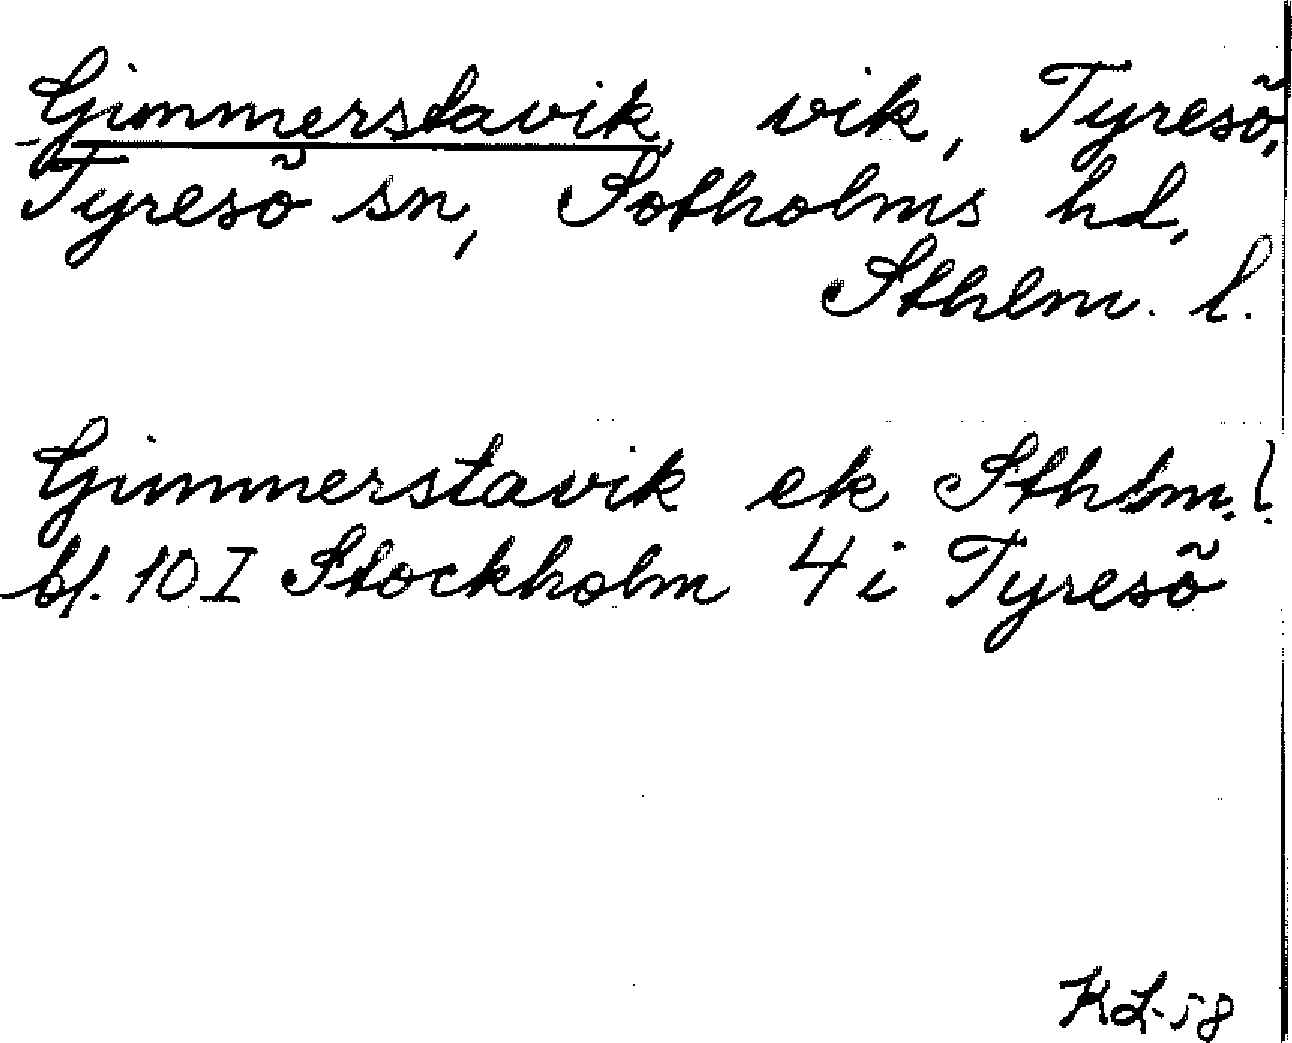 Gimmerstavik, vik, Tyresö,
Tyresö sn, Sotholms hd,
Sthlm. l.
Gimmerstavik ek Sthlm. l.
bl. 10 I Stockholm 4 i Tyresö
KL-58